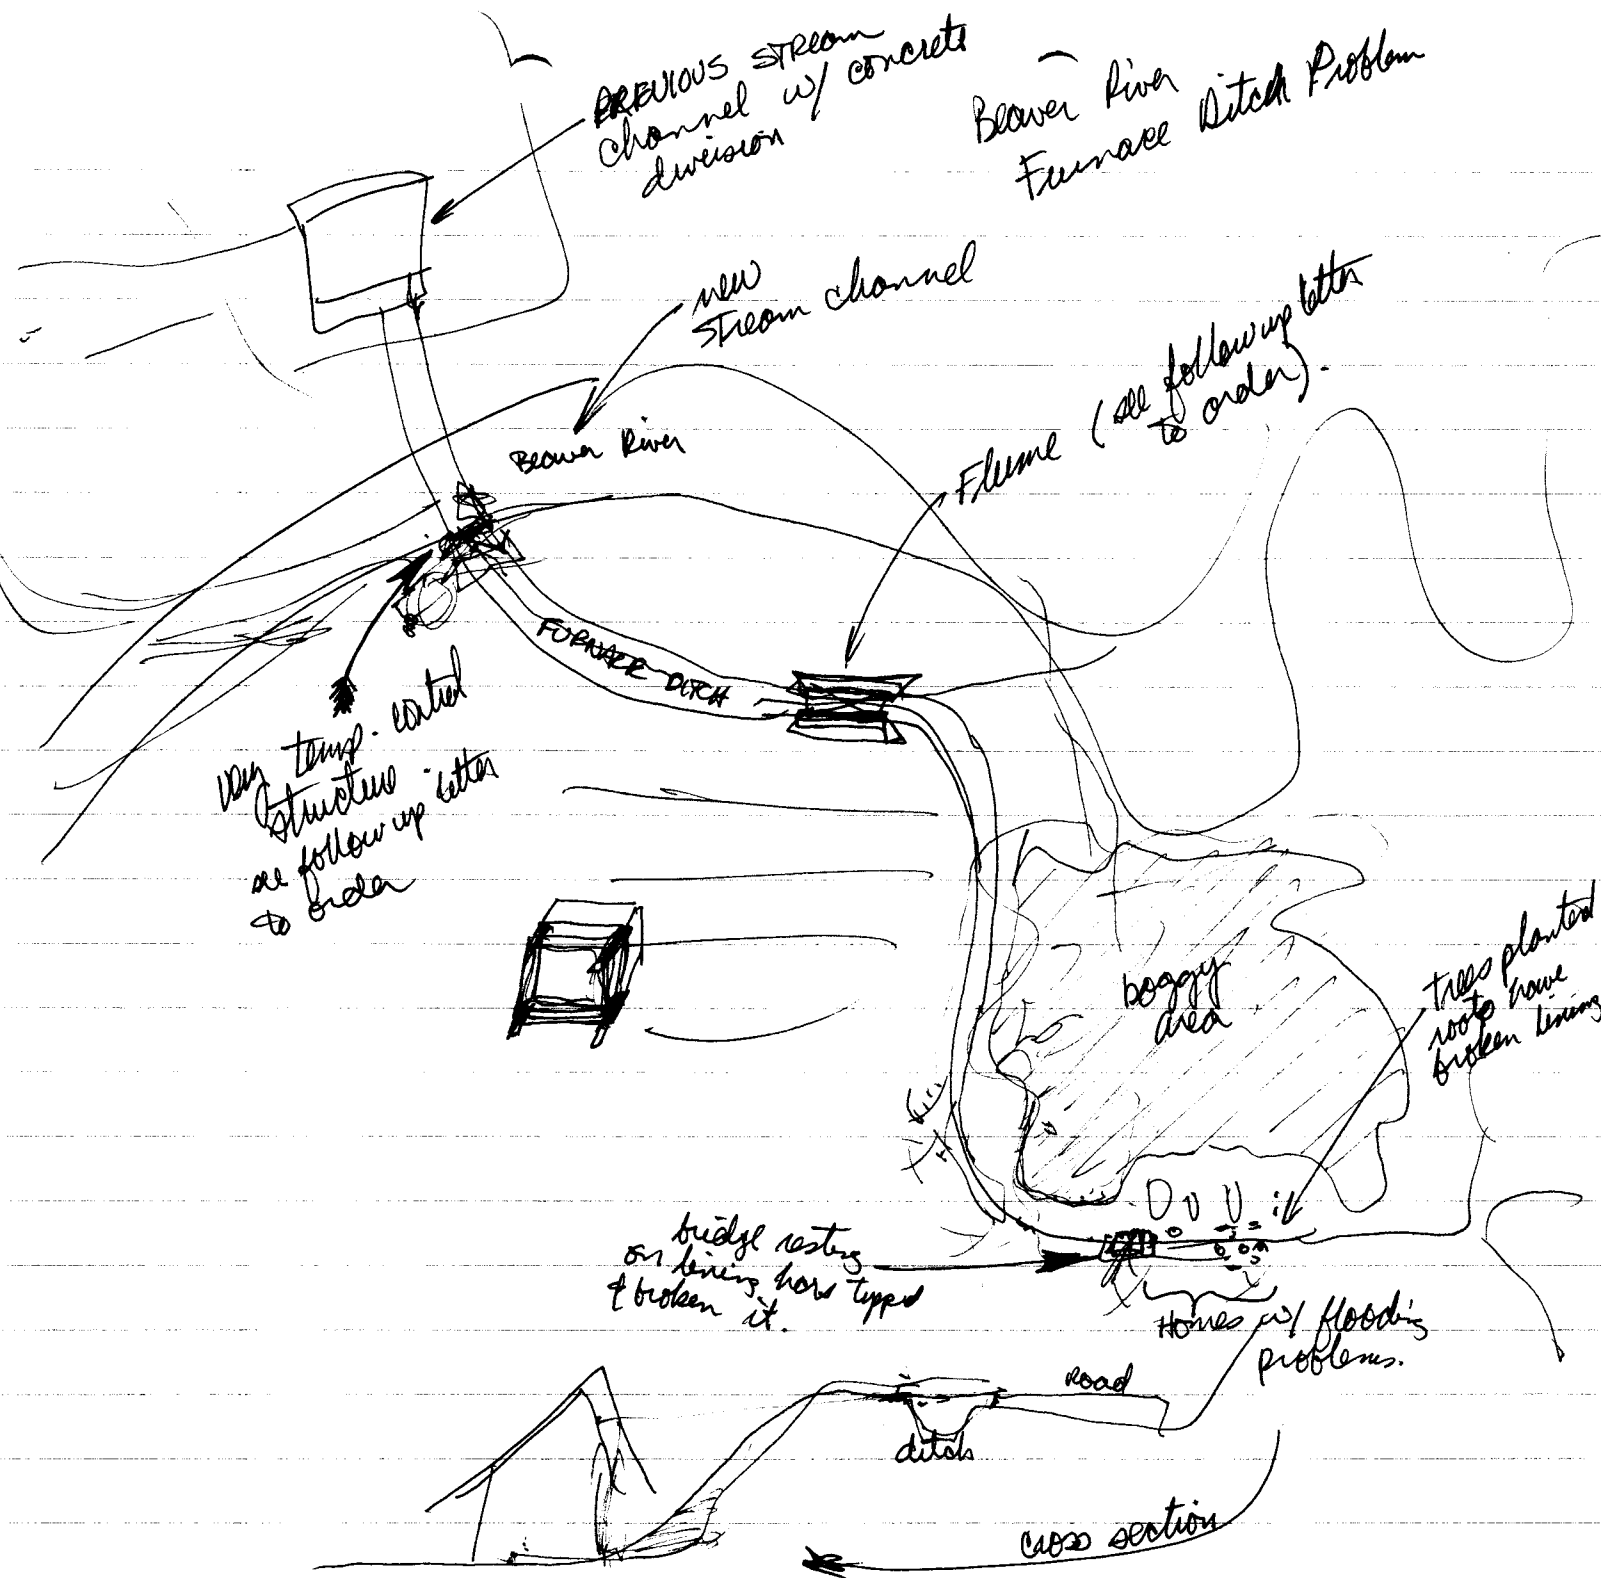 Beaver River
Furnace Ditch Problem
PREVIOUS STREAM
channel w/ concrete
division
new
stream channel
Beaver River
Flume (see follow up letter
to order).
FURNACE DITCH
very temp. control
structure
see follow up letter
to order
boggy
area
trees planted
roots have
broken lining
bridge resting
on lining have tipped
& broken it.
Homes w/ flooding
problems.
Road
ditch
cross section